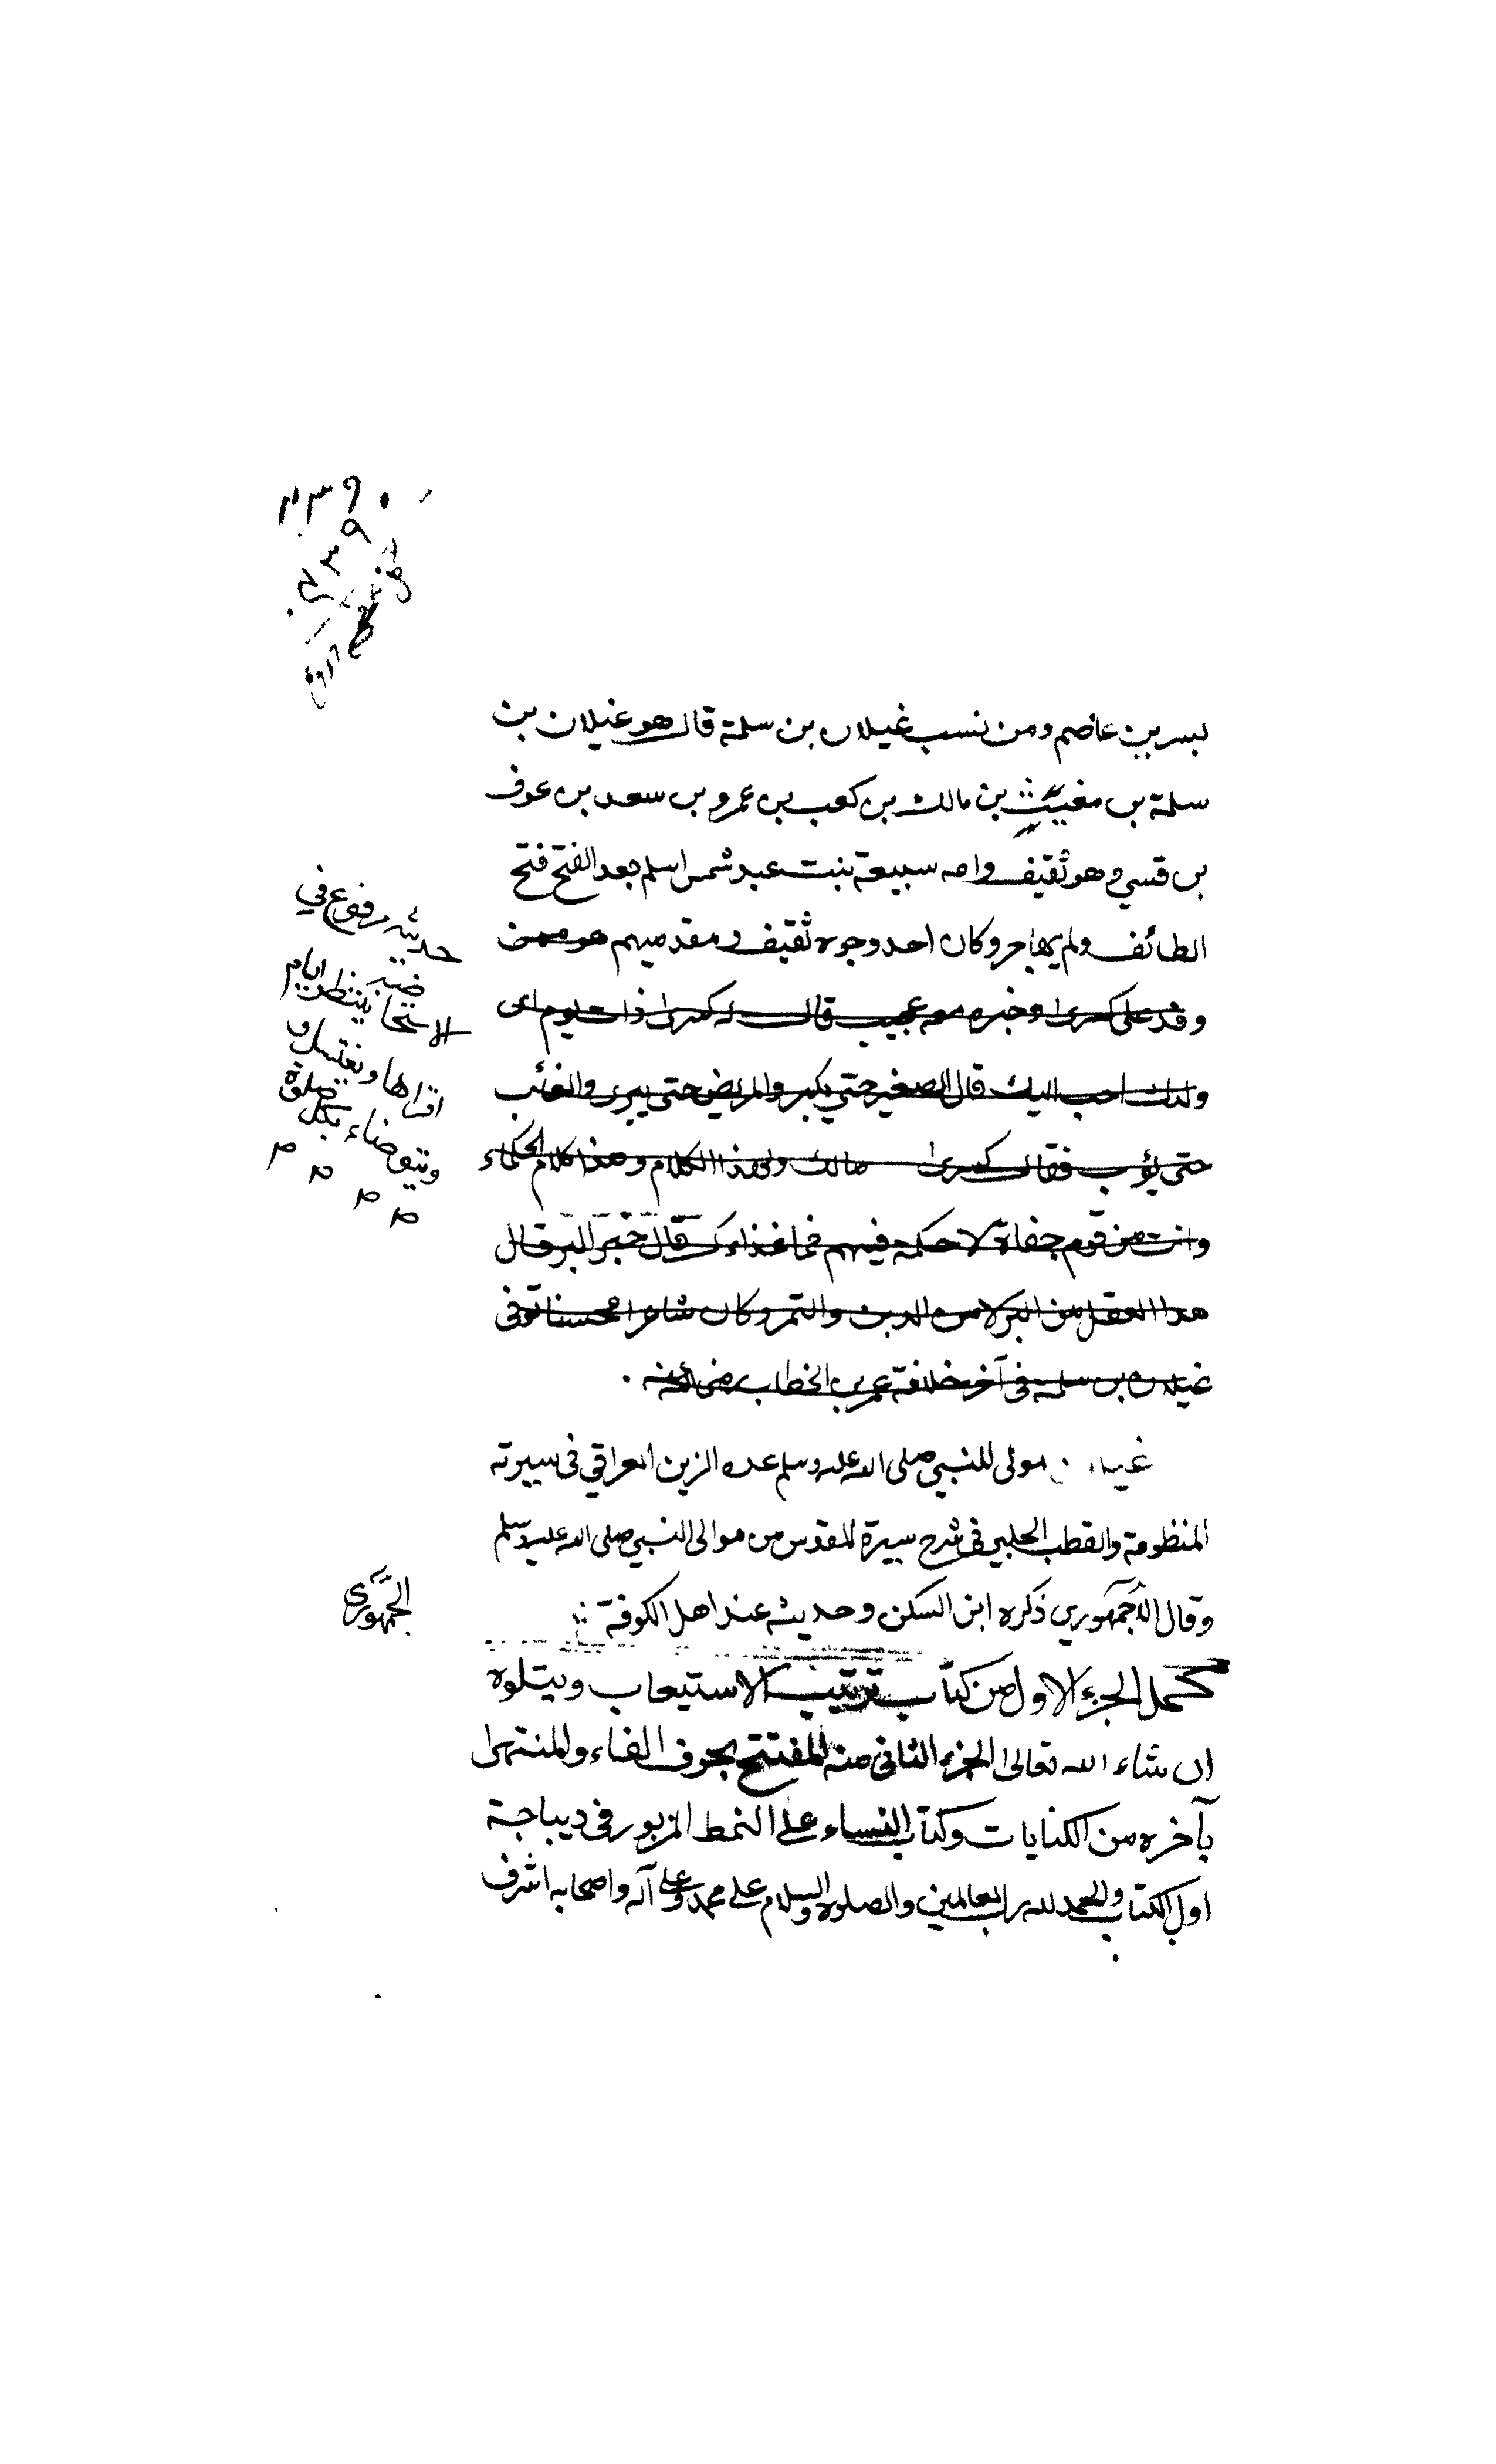 بسر بن عاصم ومن نسب غيلان بن سلمة قال هو غيلان بن
سلمة بن مغيث بن مالك بن كعب بن عمرو بن سعد بن عوف
بن قسي وهو ثقيف وامه سبيعة بنت عبد شمس اسلم بعد الفتح فتح
الطائف ولم يهاجر وكان احد وجوه ثقيف ومقدميهم هو ممن
وفد على كسرى وخبره معه عجيب قال له كسرى ذات يوم اى
ولدك احب اليك قال الصغير حتي يكبر والمريض حتى يبرى والغائب
حتى يؤب فقال كسرى مالك ولهذا الكلام وهذا كلام الحكماء
وانت من قوم جفاة لا حكمة فيهم فما غذاءك قال خبز البر قال
هذا العقل من البر لا من اللبن والتمر وكان شاعرا محسنا توفى
غيلان بن سلمة فى آخر خلافة عمر بن الخطاب رضى الله عنه .
مولى للنبي صلى الله عليه وسلم عده الزين العراقي فى سيرته
المنظومة والقطب الحلبي فى شرح سيرة المقدس من موالى النبي صلى الله عليه وسلم
وقال الجمهوري ذكره ابن السكن وحديثه عند اهل الكوفة
كمل الجزء الاول من كتاب ترتيب الاستيعاب ويتلوه
ان شاء الله تعالى الجزء الثانى منه المفتتح بحرف الفاء والمنتهى
بآخره من الكنايات وكتاب النساء على النمط المزبور فى ديباجة
اول الكتاب والحمد لله رب العالمين والصلوة والسلام على محمد وعلى آله واصحابه اشرف
٢٣٩٠
حديثه مرفوع في
الاستحاضة تنتظر ايام
اقرائها وتغتسل و
وتتوضاء بكل صلوة
الجمهوري